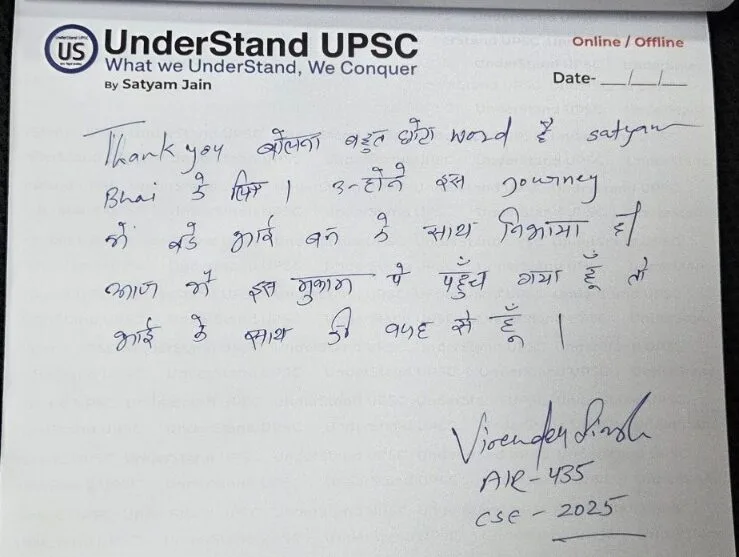 US
UnderStand UPSC
What we UnderStand, We Conquer
By Satyam Jain
Online / Offline
Date- __/__/__
Thank you बोलना बहुत छोटा word है satyam
Bhai के लिए । उन्होंने इस journey
में बडे भाई बन के साथ निभाया है।
आज मैं इस मुकाम पे पहुँच गया हूँ तो
भाई के साथ की वजह से हूँ ।
Virender Singh
AIR-435
CSE - 2025